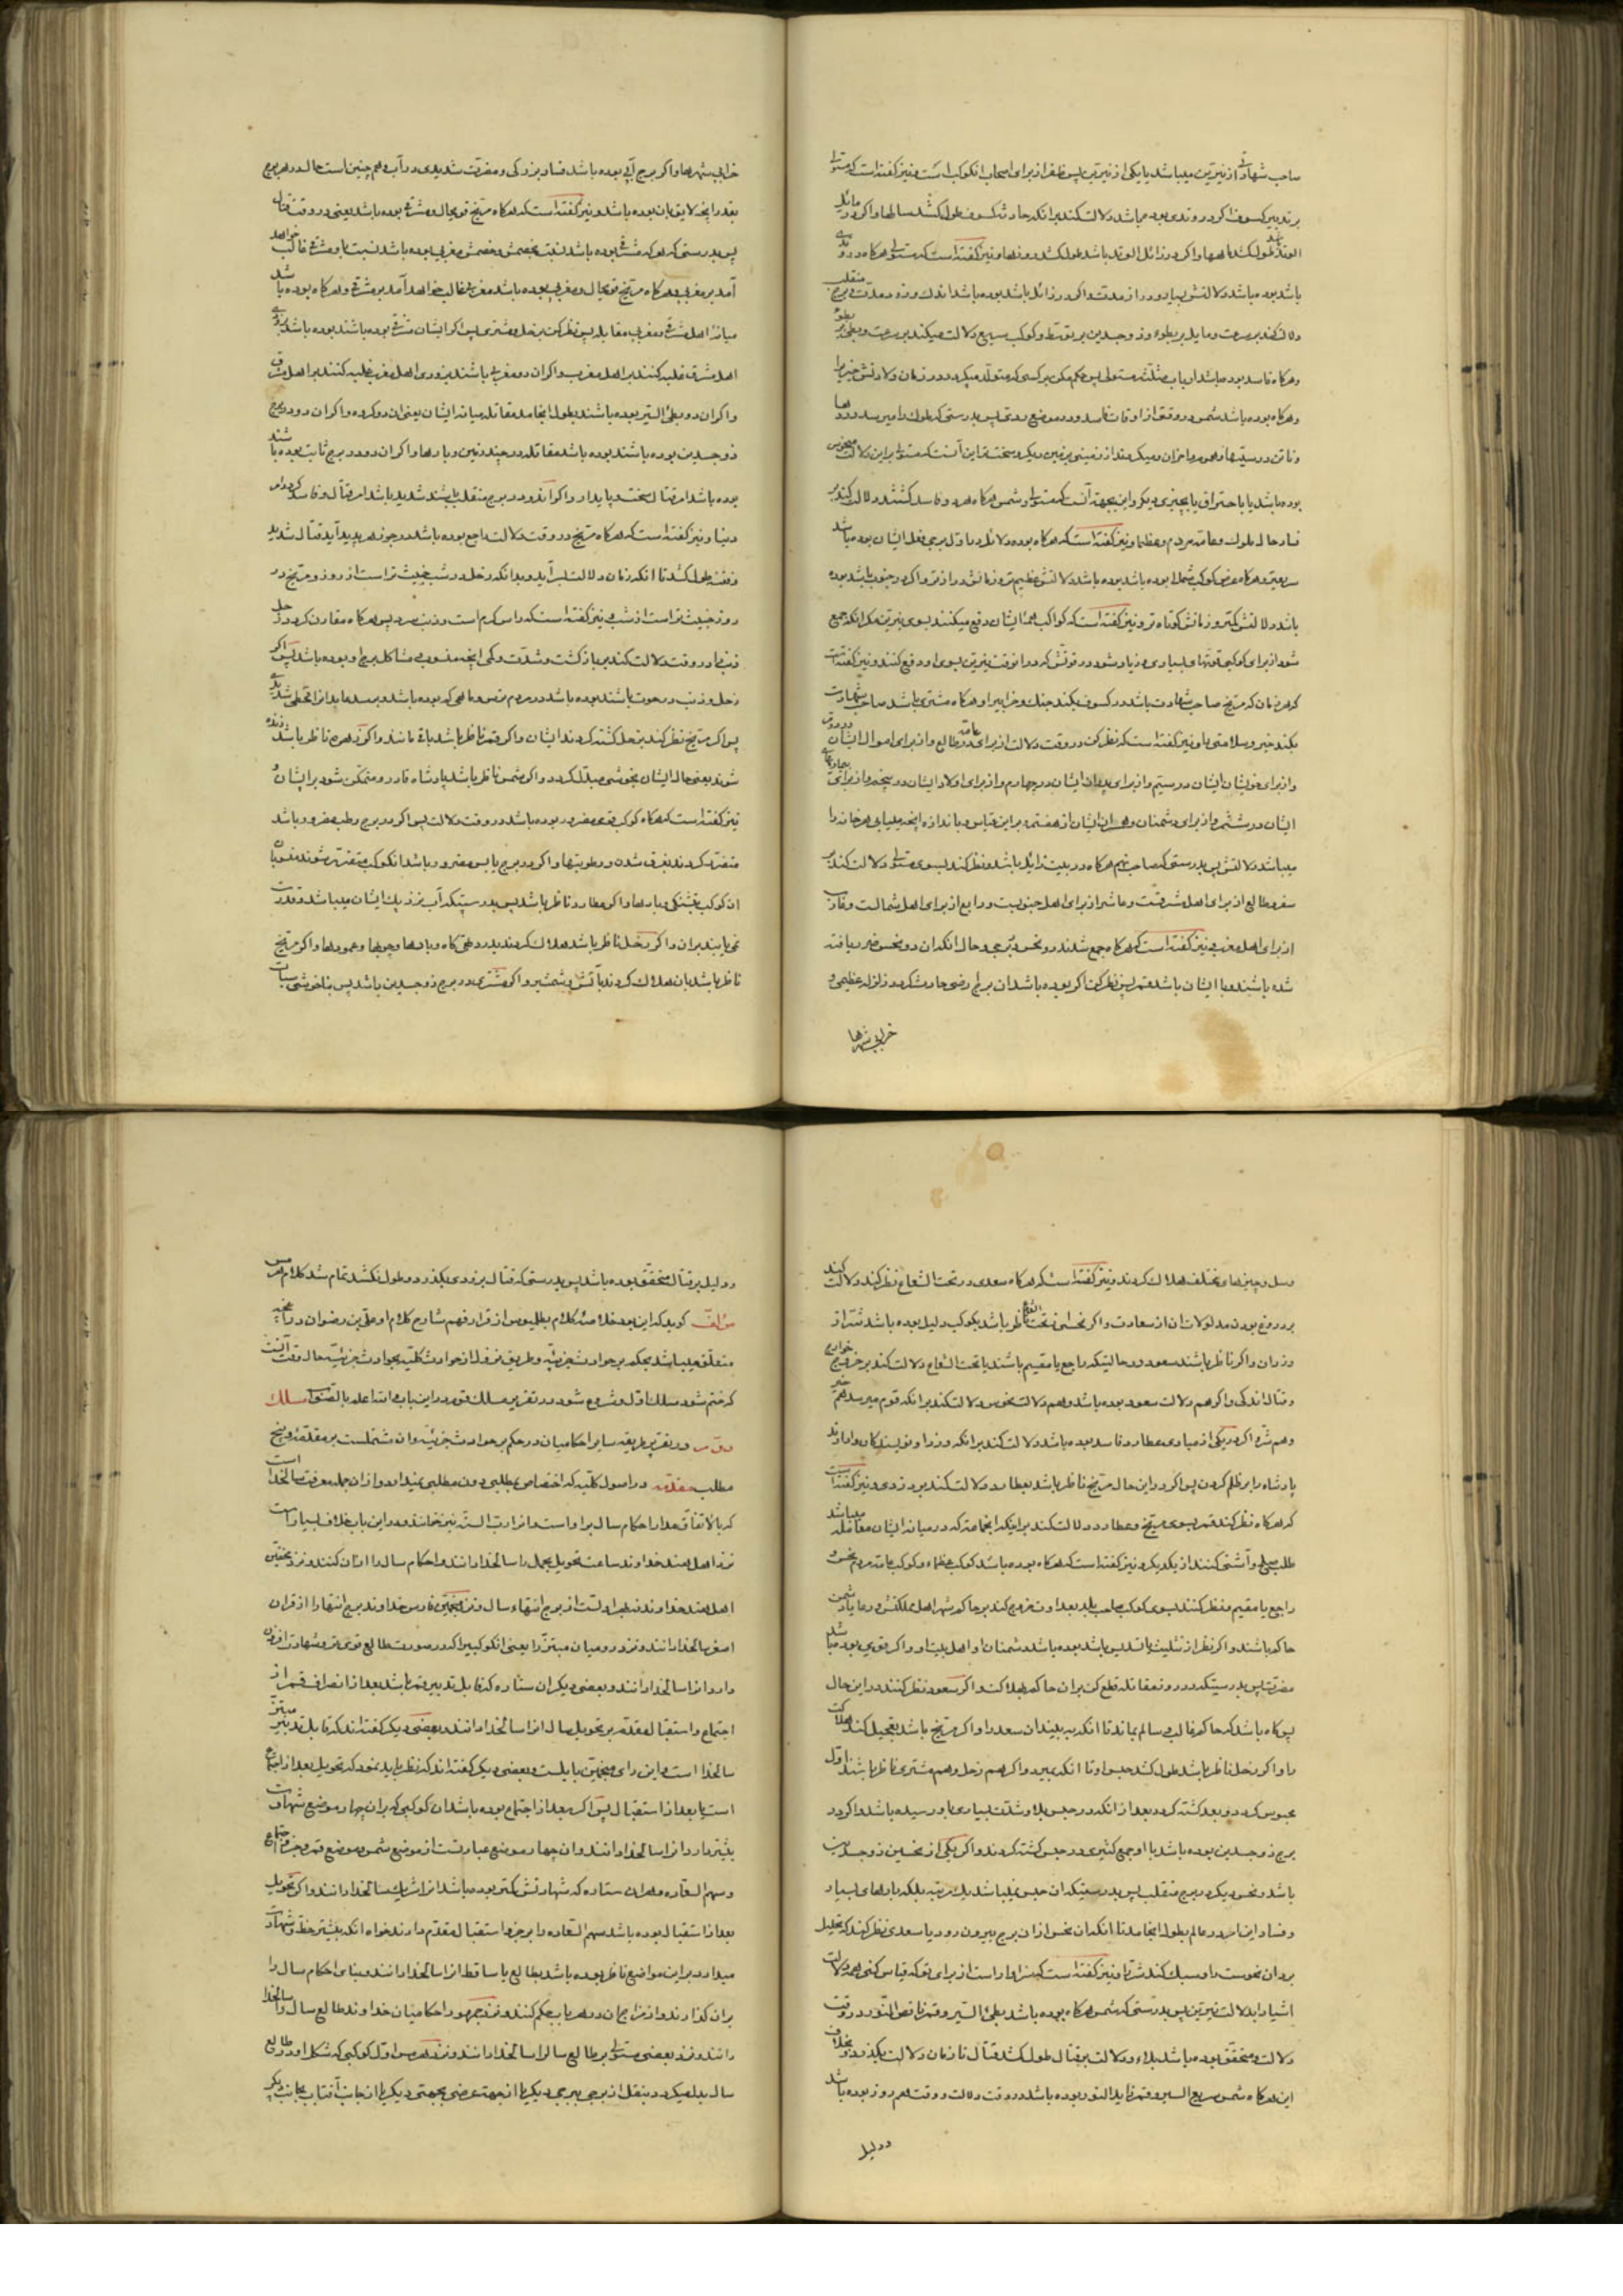 صاحب شهادتی از نیرین میباشد یا یکی از نیرین پس ظفر از برای اصحاب انکوکب است و نیز گفته است که مستولی
بر تدبیر کسوف اگر در وتدی بوده باشد دلالت کند بر انکه حادثه کسوف طول کشد سالها و اگر در مائل
الوتد باشد طول کشد ماهها و اگر در زائل الوتد باشد طول کشد روزها و نیز گفته است که مستولی هرگاه در وتدی
باشد بوده باشد دلالتش بسیار و دراز مدت و اگر در زائل باشد بوده باشد اندک و زود مدت و برج منقلب
دلالت کند بر سرعت و مایل بر بطوء و ذوجسدین بر توسط و کوکب سریع دلالت میکند بر سرعت و بطیء بر بطوء
و هرگاه فاسد بوده باشند ارباب مثلثه مستولی پس حکم مکن بر کسی که متولد میگردد در زمان ولادتش خیر را
و هرگاه بوده باشد شمس در وقتی از اوقات فاسد و در موضع ردی پس بدرستی که ملوک را میرسد دردها
بوده باشد یا باحتراق یا بچیزی دیگر و این بجهة آنست که مستولی و شمس هرگاه هر دو فاسد گشتند دلالت کند بر
فساد حال ملوک و عامه مردم و عظما و نیز گفته است که هرگاه بوده دلائل در اول برجی فعل ایشان بوده باشد
سریعتر و هرگاه عرض کوکب شمالی بوده باشد بوده باشد دلالتش عظیم تر و زمانش دراز تر و اگر در جنوب باشد بوده
باشد دلالتش کمتر و زمانش کوتاه تر و نیز گفته است که کواکب همه ایشان دفع میکنند بسوی نیرین مگر انکه جمع
شود از برای کوکبی قوتهای بسیاری و زیاد شود در قوتش که در انوقت نیرین بسوی او دفع کنند و نیز گفته است
که هر زمان که مریخ صاحب شهادت باشد در کسوف بکند جنک و خرابی را و هرگاه مشتری باشد صاحب شهادت
بکند خیر و سلامتی را و نیز گفته است که نظر کن در وقت دلالت از برای عامه در طالع و از برای اموال ایشان در دوم
و از برای خویشان ایشان در سیم و از برای پدران ایشان در چهارم و از برای اولاد ایشان در پنجم و از برای بیماریهای
ایشان در ششم و از برای دشمنان و همسران ایشان از هفتم و بر این قیاس و باندازه اینچه میلیابی هر خانه را
میباشد دلالتش پس بدرستی که صاحب نهم هرگاه در بیت زائل باشد و نظر کند بسوی مستولی دلالت کند بر
سفر و طالع از برای اهل مشرقست و عاشر از برای اهل جنوبست و رابع از برای اهل شمالست و غارب
از برای اهل مغرب و نیز گفته است که هرگاه جمع شدند دو نحس در برجی و حال انکه ان دو نحس ضرر یافته
شده باشند و با ایشان باشد قمر پس نظر کن اگر بوده باشد ان برج ارضی حادث گردد زلزله عظیمی و
خرابی شهرها
خرابی شهرها و اگر برج آبی بوده باشد فساد بزرگی و مضرت شدیدی در آب و همچنین است حال در هر برج
بقدر اینچه لایق بان بوده باشد و نیز گفته است که هرگاه مریخ قوی حال و مشرقی بوده باشد یعنی در وقت قتال
پس بدرستی که هر که مشرقی بوده باشد نسبت بخصمش و خصمش مغربی بوده باشد نسبت باو مشرقی غالب خواهد
آمد بر مغربی و هرگاه مریخ قوی حال و مغربی بوده باشد مغربی غالب خواهد آمد بر مشرقی و هرگاه بوده باشد
میانه اهل مشرق و مغرب مقابله پس نظر کن بزحل و مشتری پس اگر ایشان مشرقی بوده باشند بوده باشد بزودی
اهل مشرق غلبه کنند بر اهل مغرب و اگر ان دو مغربی باشند بزودی اهل مغرب غلبه کنند بر اهل مشرق
و اگر ان دو بطیء السیر بوده باشند بطول انجامد مقاتله میانه ایشان یعنی ان دو گروه و اگر ان دو در برج
ذوجسدین بوده باشند بوده باشد مقاتله در چند زمین و بارها و اگر ان دو در برج ثابت بوده باشند
بوده باشد امر قتال سخت و پایدار و اگر ان دو در برج منقلب باشند شدید باشد امر قتال و فاسد گرداند
دنیا و نیز گفته است که هرگاه مریخ در وقت دلالت راجع بوده باشد در جوزهر پدید آید قتال شدید
و فتنه طول کشد تا انکه زمان دلالت بسر آید و بدانکه زحل در شب خبیث تر است از روز و مریخ در
روز خبیث تر است از شب و نیز گفته است که راس گرم است و ذنب سرد پس هرگاه مقارن گردد زحل
ذنب را در وقت دلالت کند بر باز گشت و شدت و کمی اینچه منسوب و مشاکل برج او بوده باشد پس اگر
پس اگر مریخ نظر کند بزحل کشته گردند ایشان و اگر قمر ناظر باشد باقی مانند و اگر زهره ناظر باشد زنده
شوند یعنی حال ایشان بخوشی مبدل گردد و اگر شمس ناظر باشد پادشاه قادر و متمکن شود بر ایشان و
نیز گفته است که هرگاه کوکب قوی مضرور بوده باشد در وقت دلالت پس اگر در برج رطب مضرور باشد
متضرر گردند بغرق شدن و رطوبتها و اگر در برج یابس مضرور باشد انکوکب متضرر شوند منسوبان
ان کوکب بتشنکی و بادها و اگر عطارد ناظر باشد پس بدرستیکه آب نزدیک ایشان میباشد و قدرت
نمی یابند بران و اگر زحل ناظر باشد هلاک گردند بدرد کاه و بادها و چوبها و عمودها و اگر مریخ
ناظر باشد بان هلاک گردند بآتش و شمشیر و اگر مشتری در برج ذوجسدین باشد پس بناخوشی سبات
و سل و چیزهای مختلف هلاک گردند و نیز گفته است که هرگاه سعدی در تحت الشعاع نظر کند دلالت کند
بر دروغ بودن مدلولات ان از سعادت و اگر نحسی تحت الشعاع ناظر باشد بکوکب دلیل بوده باشد شر از
دزدان و اگر ناظر باشند سعود در حالتیکه راجع یا مقیم باشند یا تحت الشعاع دلالت کند بر خروج خوارج
و قتال اندکی و اگر هم دلالت سعود بوده باشد و هم دلالت نحوس دلالت کند بر انکه قوم میرسد هم خیر
و هم شر و اگر در یکی از مبادی عطارد فاسد بوده باشد دلالت کند بر انکه وزرا و نویسندگان وادارند
پادشاه را بر ظلم کردن پس اگر در این حال مریخ ناظر باشد بعطارد دلالت کند بر دزدی و نیز گفته است
که هرگاه نظر کند قمر بسوی مریخ و عطارد دلالت کند بر اینکه انجماعتی که در میانه ایشان مقاتله میباشد
طلب صلح و آشتی کنند از یکدیگر و نیز گفته است که هرگاه بوده باشد کوکب عظماء و کوکب عامه مردم نحس و
راجع یا مقیم و نظر کنند بسوی کوکب صاحب بلد بعداوت خروج کند بر حاکم شهر اهل مملکتش و رعایا دشمن
حاکم باشند و اگر نظر از تثلیث یا تسدیس باشد بوده باشد دشمنان او اهل بیت او و اگر قوی بوده باشد
پس گاه باشد که حاکم غالب و سالم بماند تا انکه به بیند ان سعد را و اگر مریخ باشد بتعجیل کند هلاکت
را و اگر زحل ناظر باشد طول کشد حبس او تا انکه بمیرد و اگر هم زحل و هم مشتری ناظر باشند اول
محبوس گردد و بعد کشته گردد بعد از انکه در حبس بلا و شدت بسیاری باو رسیده باشد و اگر در
برج ذوجسدین بوده باشد با او جمع کثیری در حبس کشته گردند و اگر یکی از نحسین در ذوجسدین
باشد و نحس دیگر در برج منقلب پس بدرستیکه ان حبس نمیباشد یک مرتبه بلکه بارهای بسیار
و فساد این امر در عالم بطول انجامد تا انکه ان نحس از ان برج بیرون رود یا سعدی نظر کند که تحلیل
برد ان نحوست را و سبک کند شر را و نیز گفته است که سزاوار است از برای تو که قیاس کنی همه دلالت
اشیا را بدلالت نیرین پس بدرستی که شمس هرگاه بوده باشد بطیء السیر و قمر ناقص النور در وقت
دلالت و متحقق بوده باشد بلاء و دلالت بر قتال طول کشد قتال تا زمان دلالت بگذرد و بخلاف
این هرگاه شمس سریع السیر و قمر زاید النور بوده باشد در وقت دلالت و وقت هم روز بوده باشد
و دلیل
و دلیل بر قتال متحقق بوده باشد پس بدرستی که قتال بزودی بگذرد و طول نکشد تمام شد کلام هرمس
مؤلف گوید که این بود خلاصه کلام بطلیموس از قرار فهم شارح کلام او علی بن رضوان در آنچه
متعلق میباشد بحکم بر حوادث جزئیه و طریق نزول از حوادث کلیه بحوادث جزئیه حال وقت آنست
که ختم شود مسلک اول و شروع شود در تقریر مسلک دوم در این باب و الله اعلم بالصواب مسلک
دویم در تقریر طریقه سایر احکامیان در حکم بر حوادث جزئیه و ان مشتملست بر مقدمه و پنج
مطلب مقدمه در اصول کلیه که اختصاص بمطلبی دون مطلبی نمیدارد و از ان جمله معرفت سالخدا است
که بالاتفاق مدار احکام سال بر او است و انرا رب السنه نیز خوانند و در این باب خلاف بسیار است
نزد اهل هند خداوند ساعت تحویل بحمل را سالخدا دانند و احکام سال را از ان کنند و نزد محققین
اهل هند خداوند از برج انتهاء سال و نزد منجمین فارس خداوند برج انتها را از قران
اصغر سالخدا دانند و نزد رومیان مبتز را یعنی انکوکبیرا که در صورت طالع قوی تر و شهادت افزون
دارد انرا سالخدا دانند و بعضی دیگر ان ستاره که قابل تدبیر قمر باشد بعد از انصراف قمر از
اجتماع و استقبال مقدم بر تحویل سال انرا سالخدا دانند و بعضی دیگر گفته اند که قابل تدبیر مبتز
سالخدا است و این رای منجمین بابلست و بعضی دیگر گفته اند که نظر باید نمود که تحویل بعد از اجتماع
است یا بعد از استقبال پس اگر بعد از اجتماع بوده باشد ان کوکبی که بران چهار موضع شهادت
بیشتر دارد انرا سالخدا دانند و ان چهار موضع عبارتست از موضع شمس و موضع قمر و جزء اجتماع
و سهم السعاده و هر ان ستاره که شهادتش کمتر بوده باشد انرا شریک سالخدا دانند و اگر تحویل
بعد از استقبال بوده باشد سهم السعاده را بر جزو استقبال مقدم دارند خواه انکه بیشتر حظ و شهادت
میدارد بر این مواضع ناظر بوده باشد بطالع یا ساقط انرا سالخدا دانند و بنای احکام سال را
بران گذارند و از مزاج ان در هر باب حکم کنند و نزد جمهور احکامیان خداوند طالع سال را سالخدا
دانند و نزد بعضی مستولی بر طالع سال را سالخدا دانند و نزد هرمس اول کوکبی که شکل او در طالع
سال بدل میگردد بنقل از برجی ببرجی دیگر یا از جهت عرضی بجهتی دیگر یا از جانب آفتاب بجانب دیگر